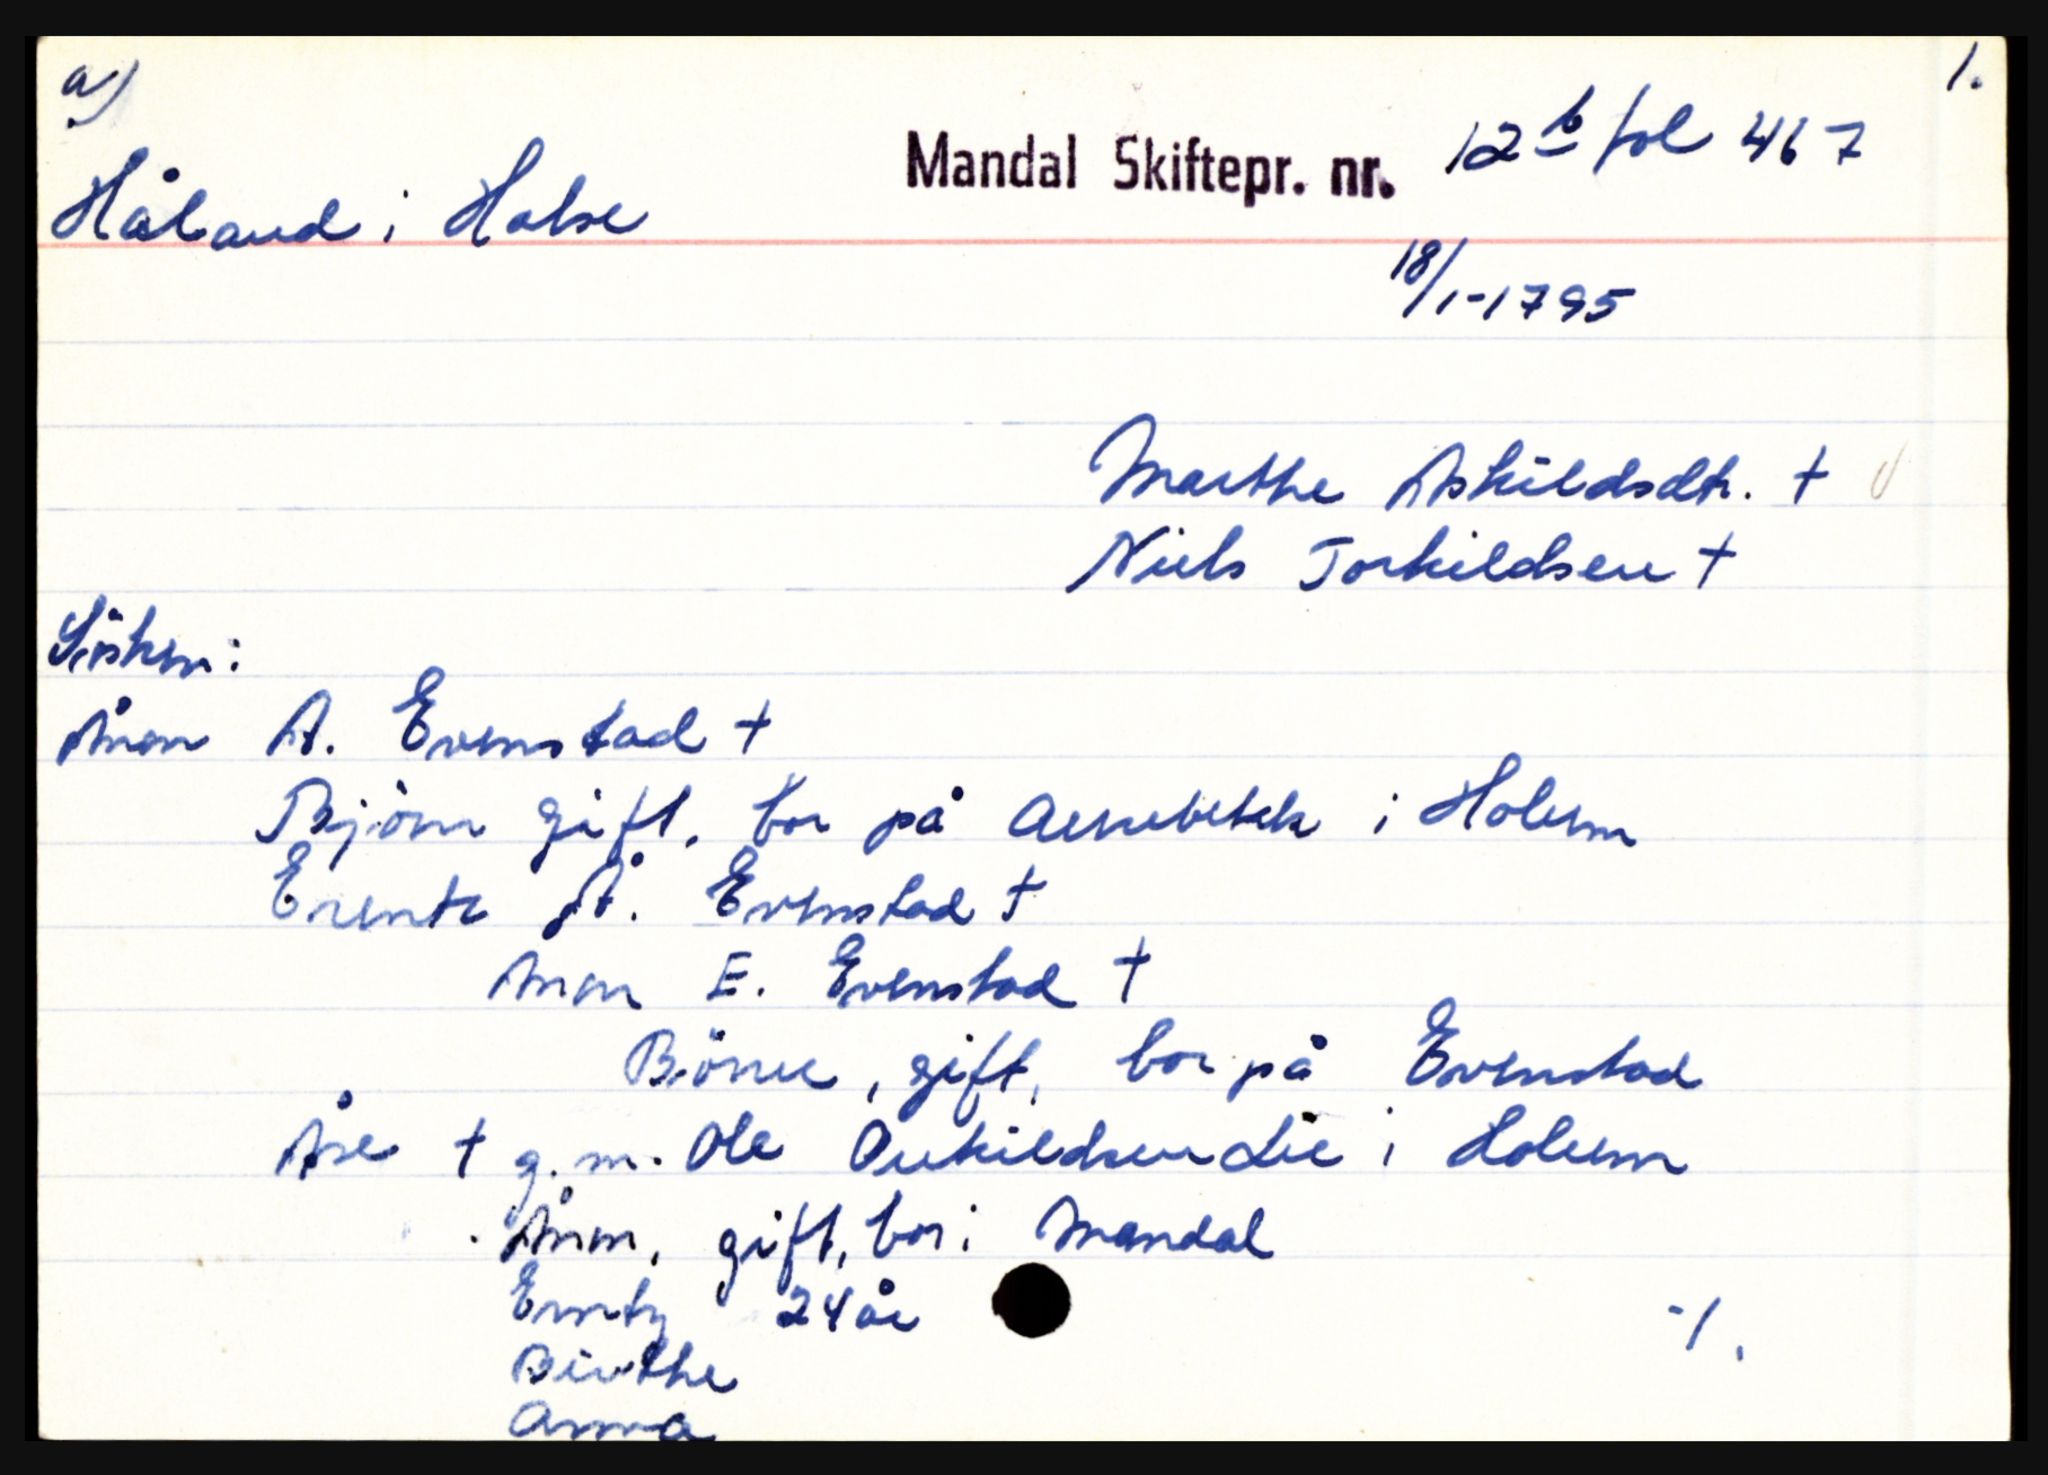 a) 1.
Håland i Halse Mandal Skiftepr. nr. 12 b fol 467
18/1-1795
Marthe Askildsdtr. †
Niels Torkildsen †
Sösken:
Ånon A. Evenstad †
Björn gift, bor på i Holum
Erents Å. Evenstad †
Anon E. Evenstad †
Börue, gift, bor på Evenstad
Åse † g.m. Ole Lie i Holum
Ånon, gift, bor i Mandal
24 år
Birthe
Anna
-/.